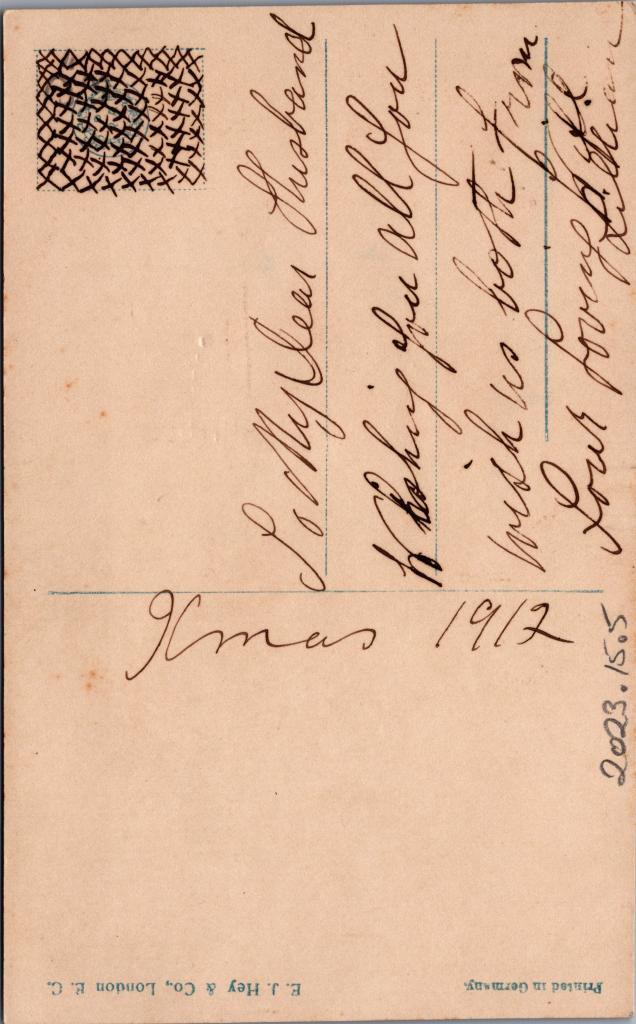 Xmas 1912
To My Dear Husband
Wishing you all you
wish us both from
Your loving Wife
Lillian
2023.15.5
E. J. Hey & Co., London E. C.
Printed in Germany.